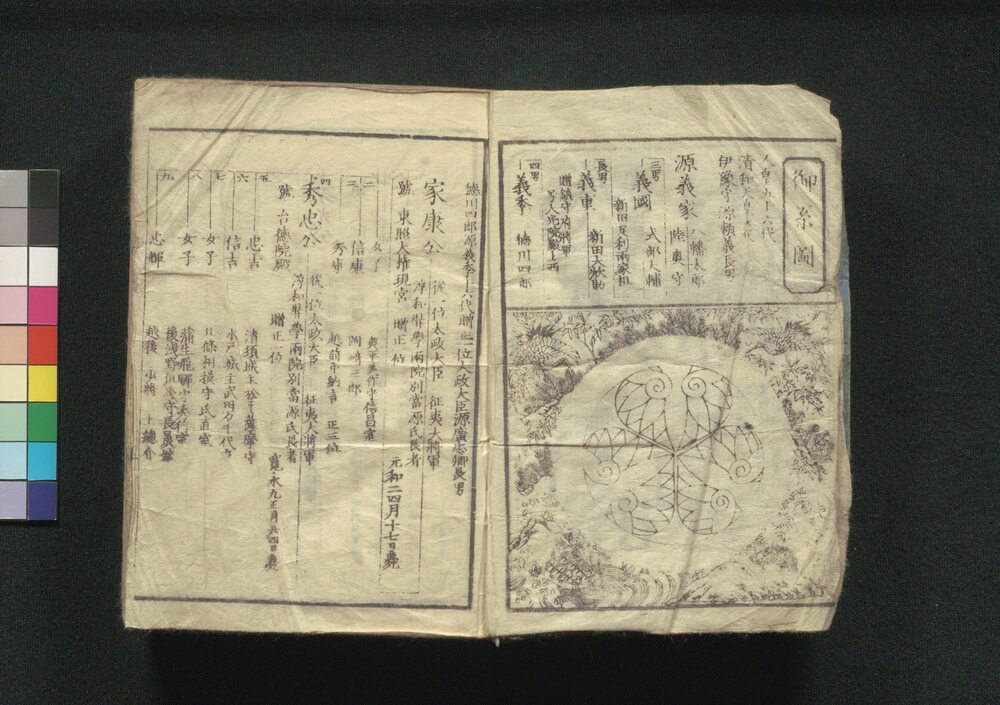 御系圖
人皇五十六代
清和天皇六代
伊豫守源頼義長男
源義家 八幡太郎 陸奥守
三男
義國 式部大輔
新田足利両家祖
長男
義重 新田大炊助
贈鎮守府将軍
四男
義季 徳川四郎
徳川四郎源義季十六代贈正一位太政大臣源廣忠卿長男
家康公 從一位太政大臣 征夷大將軍
淳和奨學両院別當源氏長者
跡 東照大権現宮 贈正一位
元和二四月十七日薨
二 女子 奥平美作守信昌室
三 信康 岡崎三郎
秀康 越前中納言 正三位
四
秀忠公 從一位太政大臣 征夷大將軍
淳和奨學両院別當源氏長者
跡 台徳院殿 贈正一位
寛永九正月廿四日薨
五 忠吉 清須城主松平薩摩守
六 信吉 水戸城主武田万千代
七 女子 北條相模守氏直室
八 女子 蒲生飛騨守秀行室
後浅野但馬守長晟室
九 忠輝 越後少将 上總介